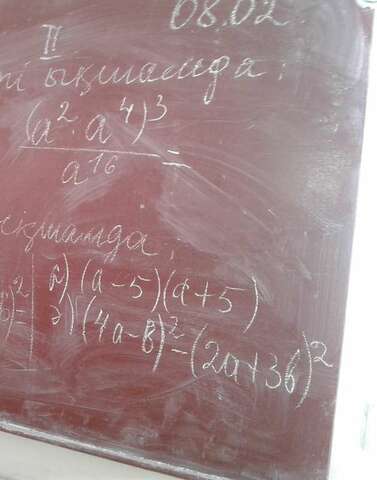 08.02
II
ықшамда:
(a²·a⁴)³
a¹⁶ =
ықшамда:
)² б) (a-5)(a+5)
)= г) (4a-в)²-(2a+3в)²